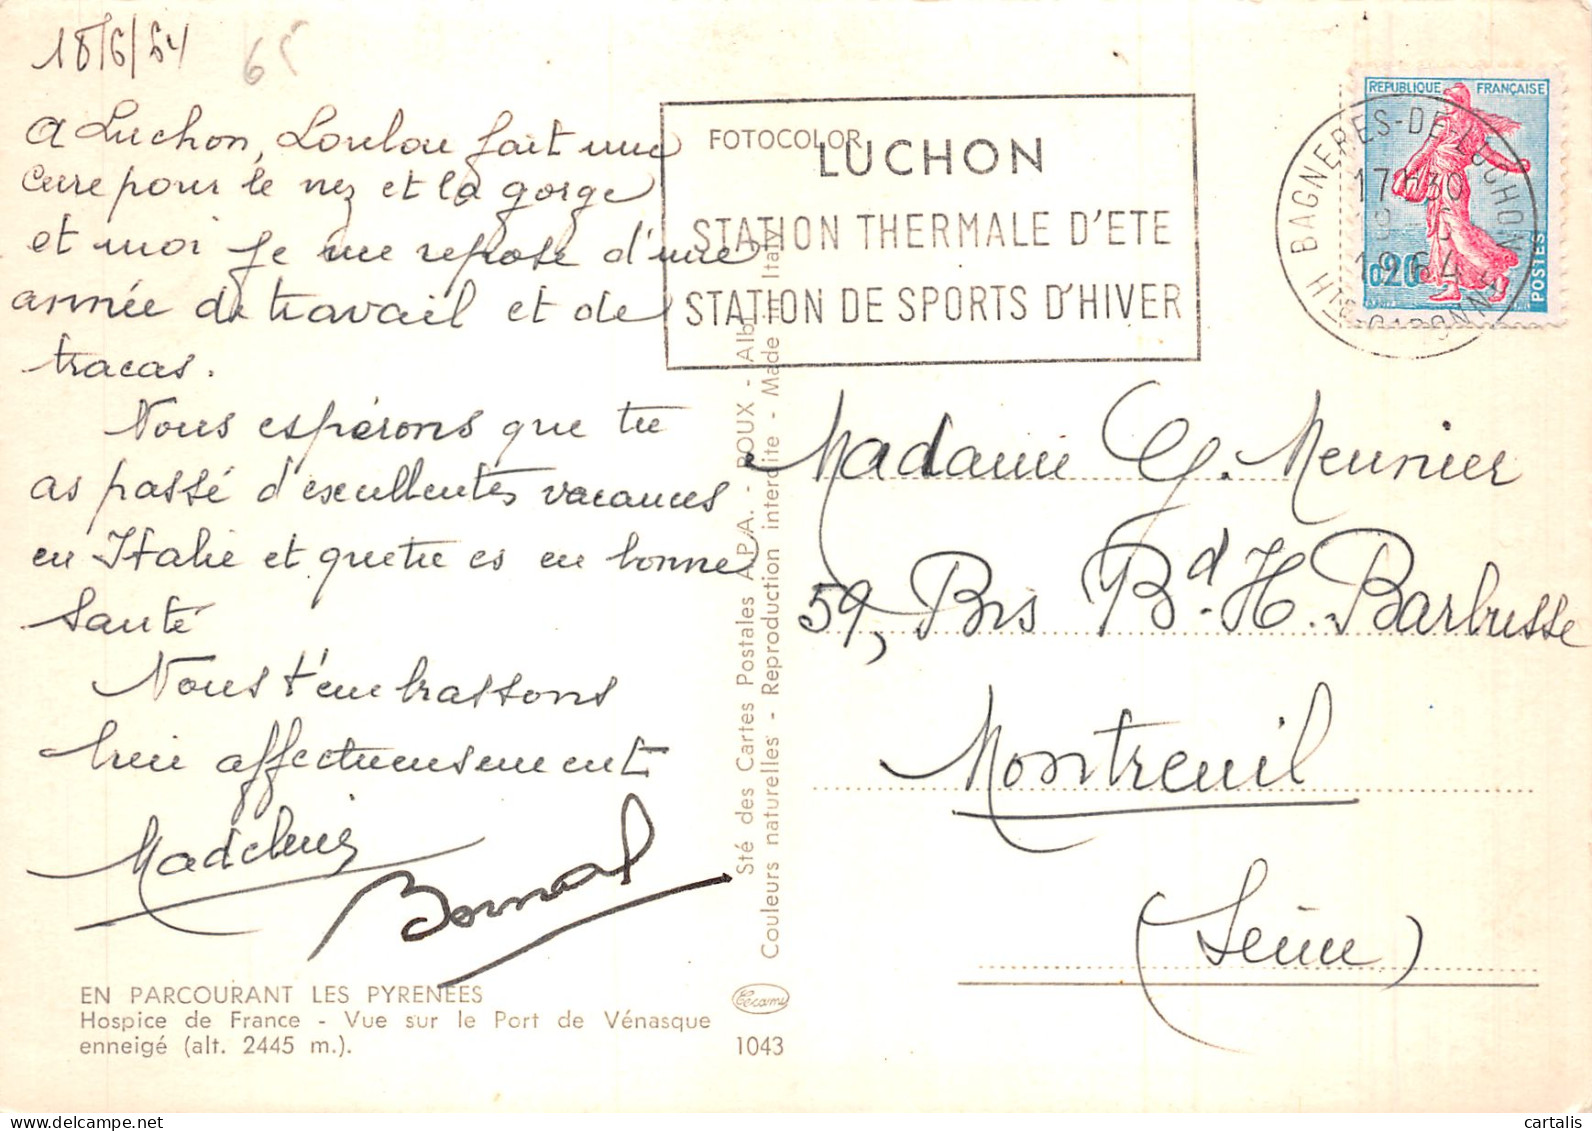 18/6/64
65
A Luchon, Loulou fait une
cure pour le nez et la gorge
et moi je me repose d'une
année de travail et de
tracas.
Nous espérons que tu
as passé d'excellentes vacances
en Italie et que tu es en bonne
santé
Nous t'embrassons
bien affectueusement
Madeleine
EN PARCOURANT LES PYRENEES
Hospice de France - Vue sur le Port de Vénasque
enneigé (alt. 2445 m.).
FOTOCOLOR
LUCHON
STATION THERMALE D'ETE
STATION DE SPORTS D'HIVER
Sté des Cartes Postales A.P.A. - POUX - Albi
Couleurs naturelles - Reproduction interdite - Made in Italy
1043
REPUBLIQUE FRANÇAISE
0,20
POSTES
BAGNERES-DE-LUCHON
17H30
19 6
1964
HTE GARONNE
Madame G. Meunier
59, Bis Bd. H. Barbusse
Montreuil
(Seine)
cartalis
www.delcampe.net